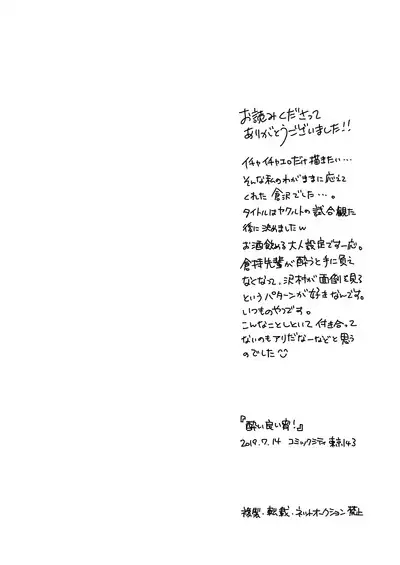 お読みくださって
ありがとうございました!!
イチャイチャエロだけ描きたい…
そんな私のわがままに応えて
くれた倉沢でした…。
タイトルはヤクルトの試合観た
後に決めましたw
お酒飲める大人設定です一応。
倉持先輩が酔うと手に負え
なくなって、沢村が面倒を見る
というパターンが好きなんです。
いつものやつです。
こんなことしといて付き合って
ないのもアリだなーなどと思う
のでした
『酔い良い宵!』
2019.7.14 コミックシティ東京143
複製・転載・ネットオークション禁止